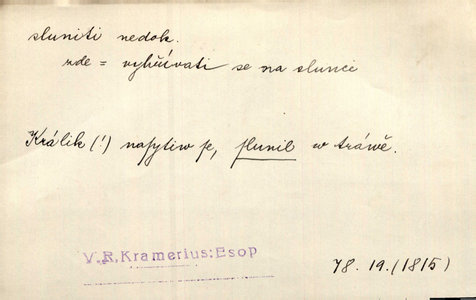 sluniti nedok.
zde = vyhřívati se na slunci
Králik (!) nasytiw se, slunil w tráwě.
V. R. Kramerius: Esop
78. 19. (1815)